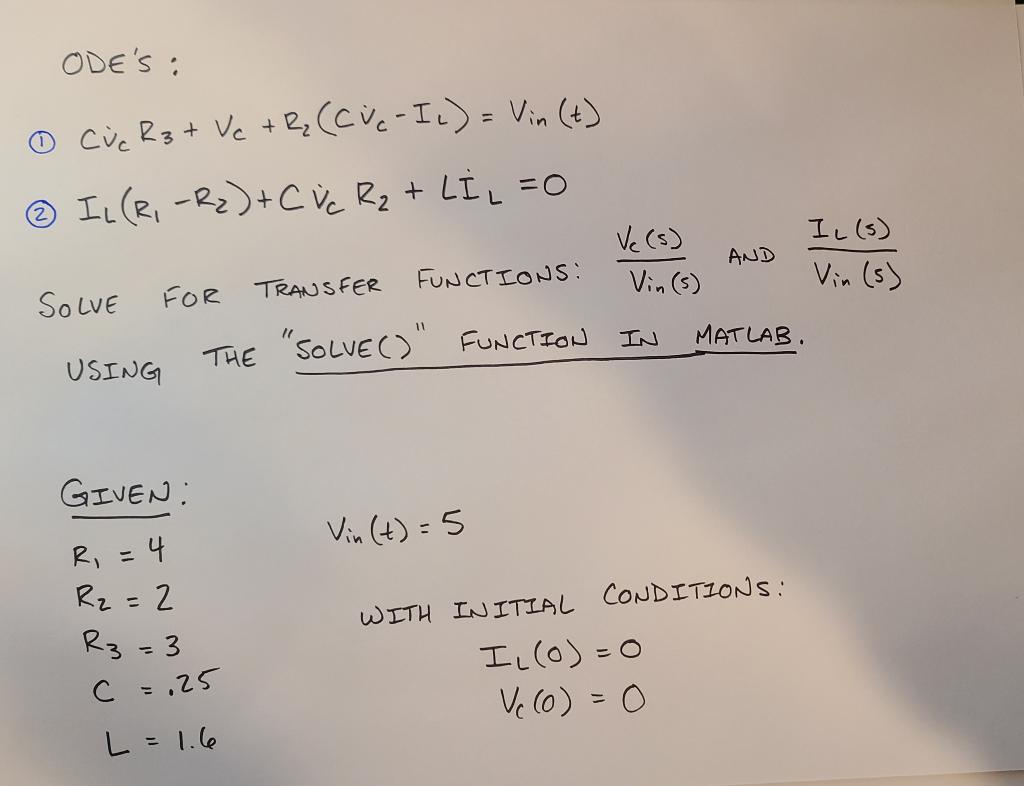 ODE'S :
① CV̇c R3 + Vc + R2 (CV̇c - IL) = Vin (t)
② IL (R1 - R2) + C V̇c R2 + L İL = 0
SOLVE FOR TRANSFER FUNCTIONS: Vc (s) / Vin (s) AND IL (s) / Vin (s)
USING THE "SOLVE()" FUNCTION IN MATLAB.
GIVEN:
Vin (t) = 5
R1 = 4
R2 = 2
WITH INITIAL CONDITIONS:
R3 = 3
IL (0) = 0
C = .25
Vc (0) = 0
L = 1.6